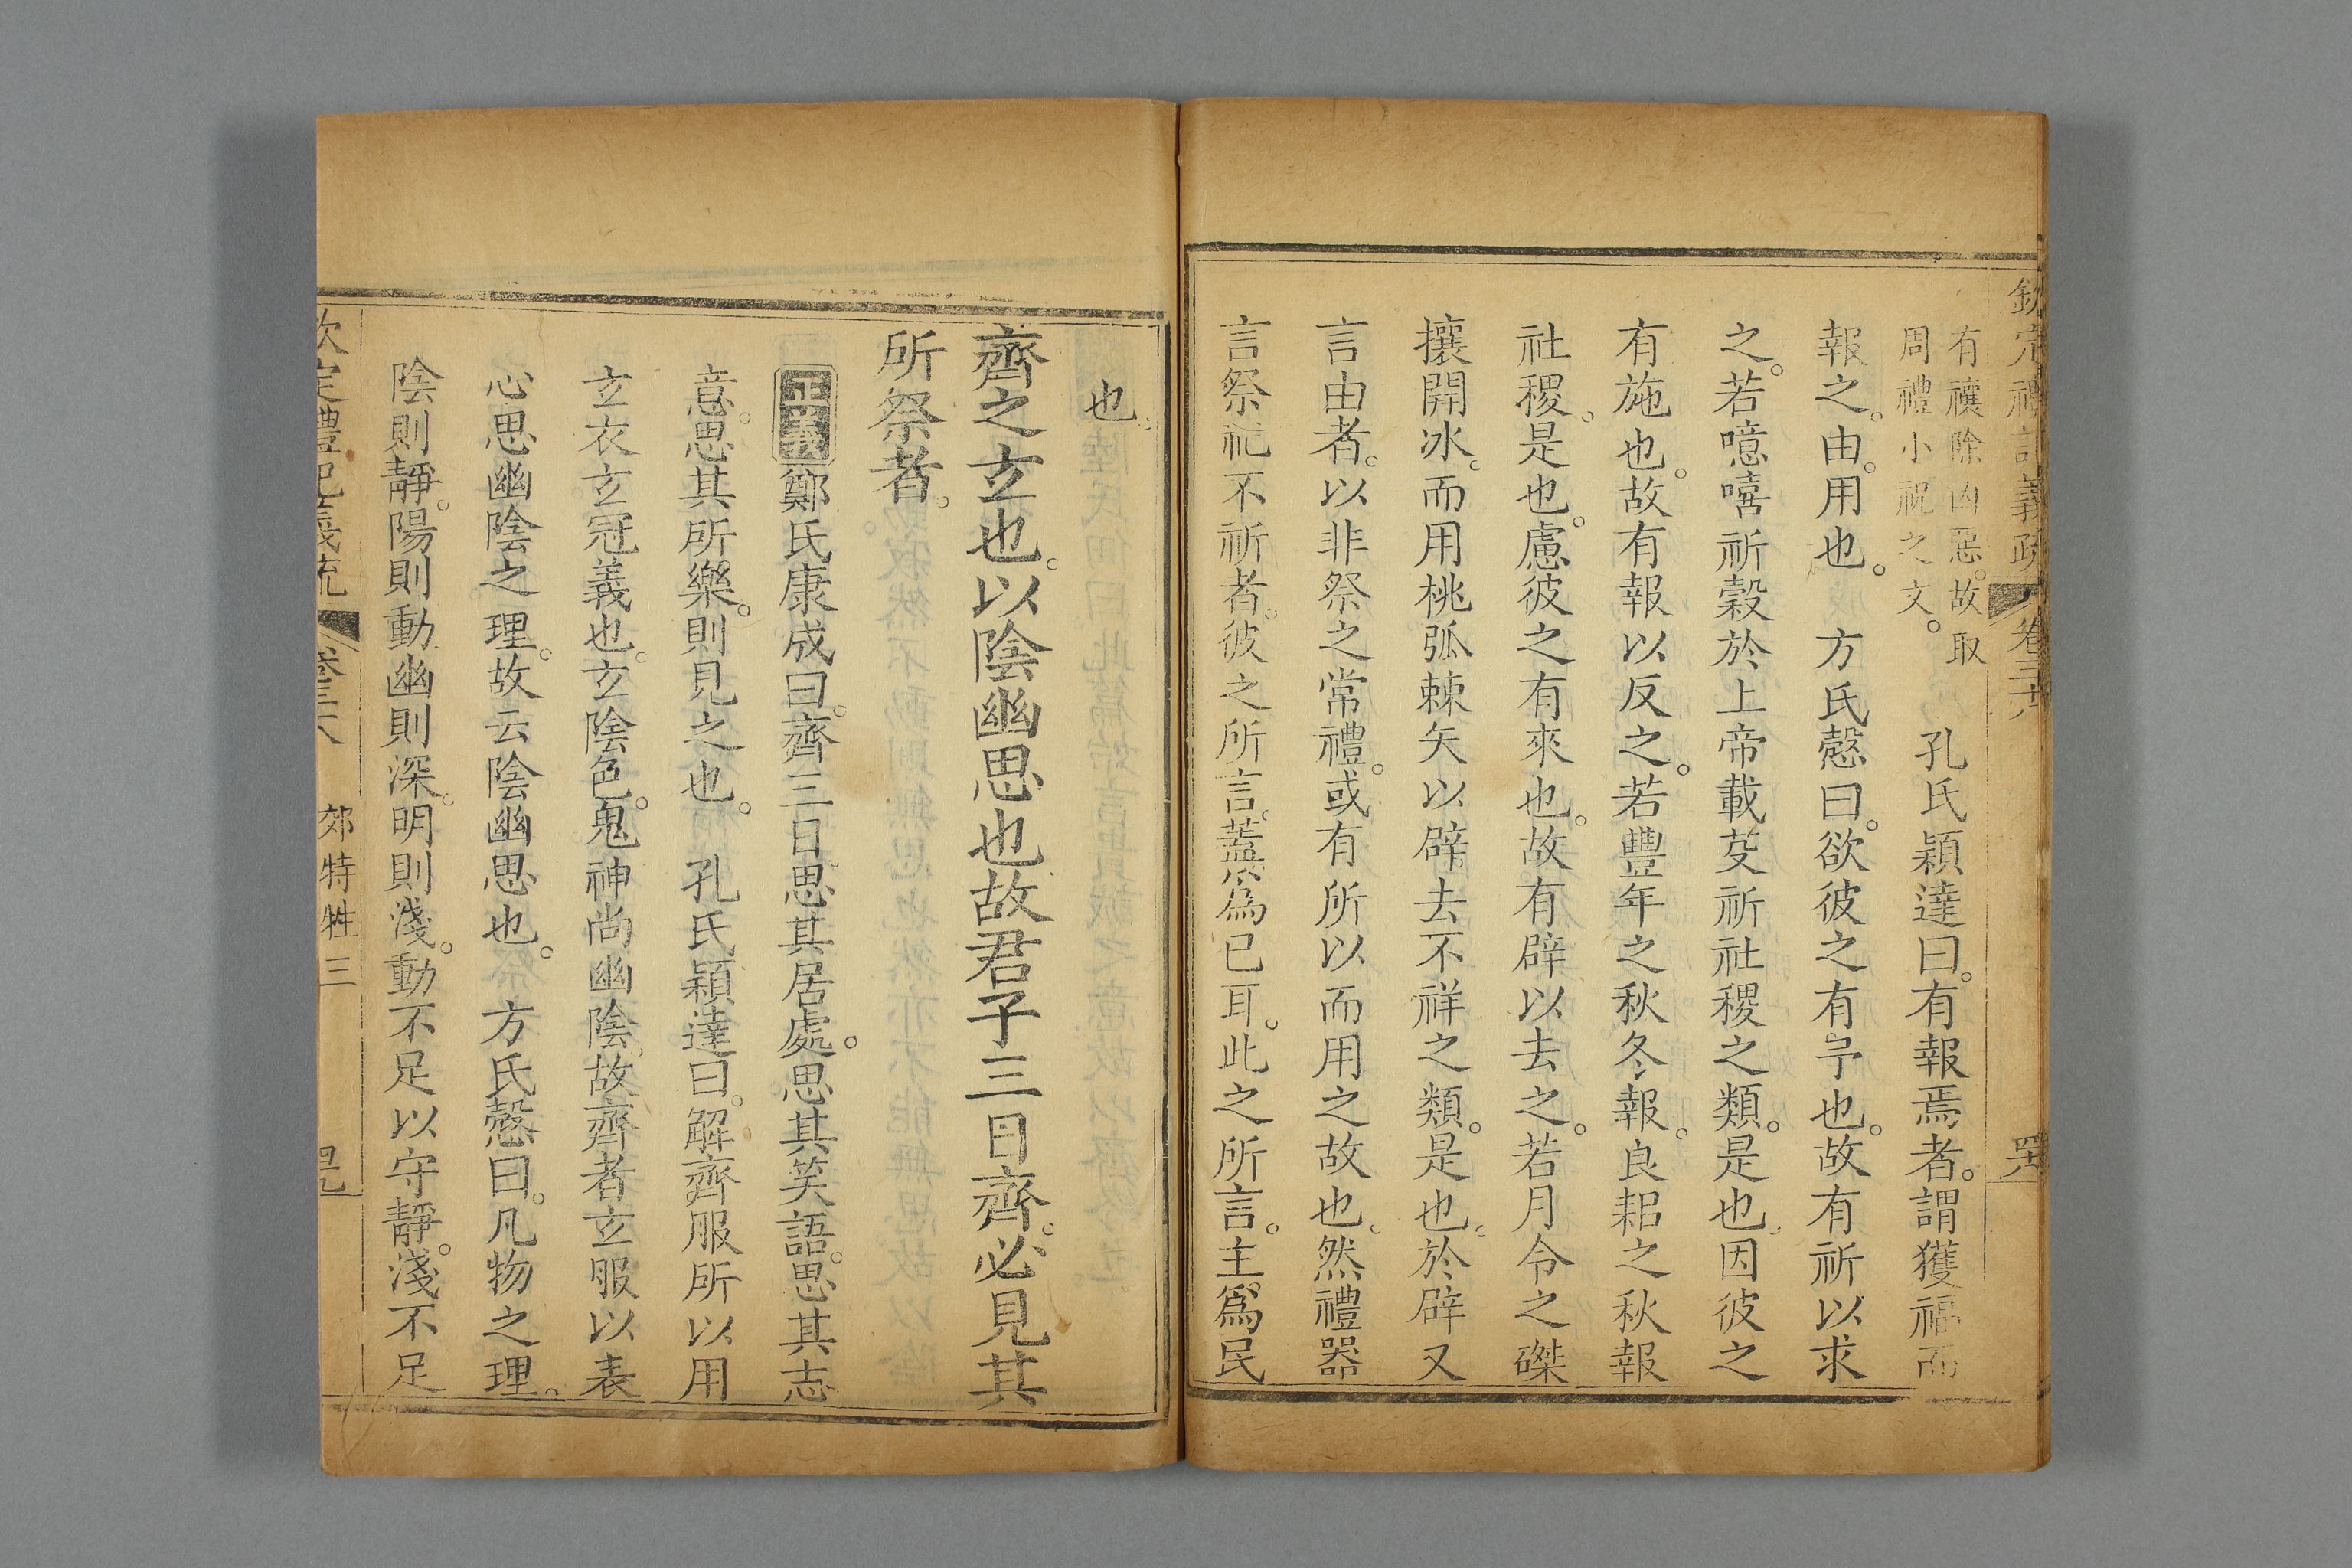 欽定禮記義疏 卷三十六 四六
有禳除凶惡。故取
周禮小祝之文。
孔氏穎達曰。有報焉者。謂獲福而
報之。由。用也。 方氏慤曰。欲彼之有予也。故有祈以求
之。若噫嘻祈穀於上帝載芟祈社稷之類。是也。因彼之
有施也。故有報以反之。若豐年之秋冬報。良耜之秋報
社稷。是也。慮彼之有來也。故有辟以去之。若月令之磔
攘開冰。而用桃弧棘矢以辟去不祥之類。是也。於辟又
言由者。以非祭之常禮。或有所以而用之故也。然禮器
言祭祀不祈者。彼之所言。蓋為已耳。此之所言。主爲民
也。
齊之玄也。以陰幽思也故君子三日齊。必見其
所祭者。
正義鄭氏康成曰。齊三日思其居處。思其笑語。思其志
意。思其所樂。則見之也。 孔氏穎達曰。解齊服所以用
玄衣玄冠義也。玄陰色。鬼神尚幽陰。故齊者玄服以表
心思幽陰之理。故云陰幽思也。 方氏慤曰。凡物之理。
陰則靜。陽則動幽則深。明則淺。動不足以守靜。淺不足
欽定禮記義疏 卷三十六 郊特牲三